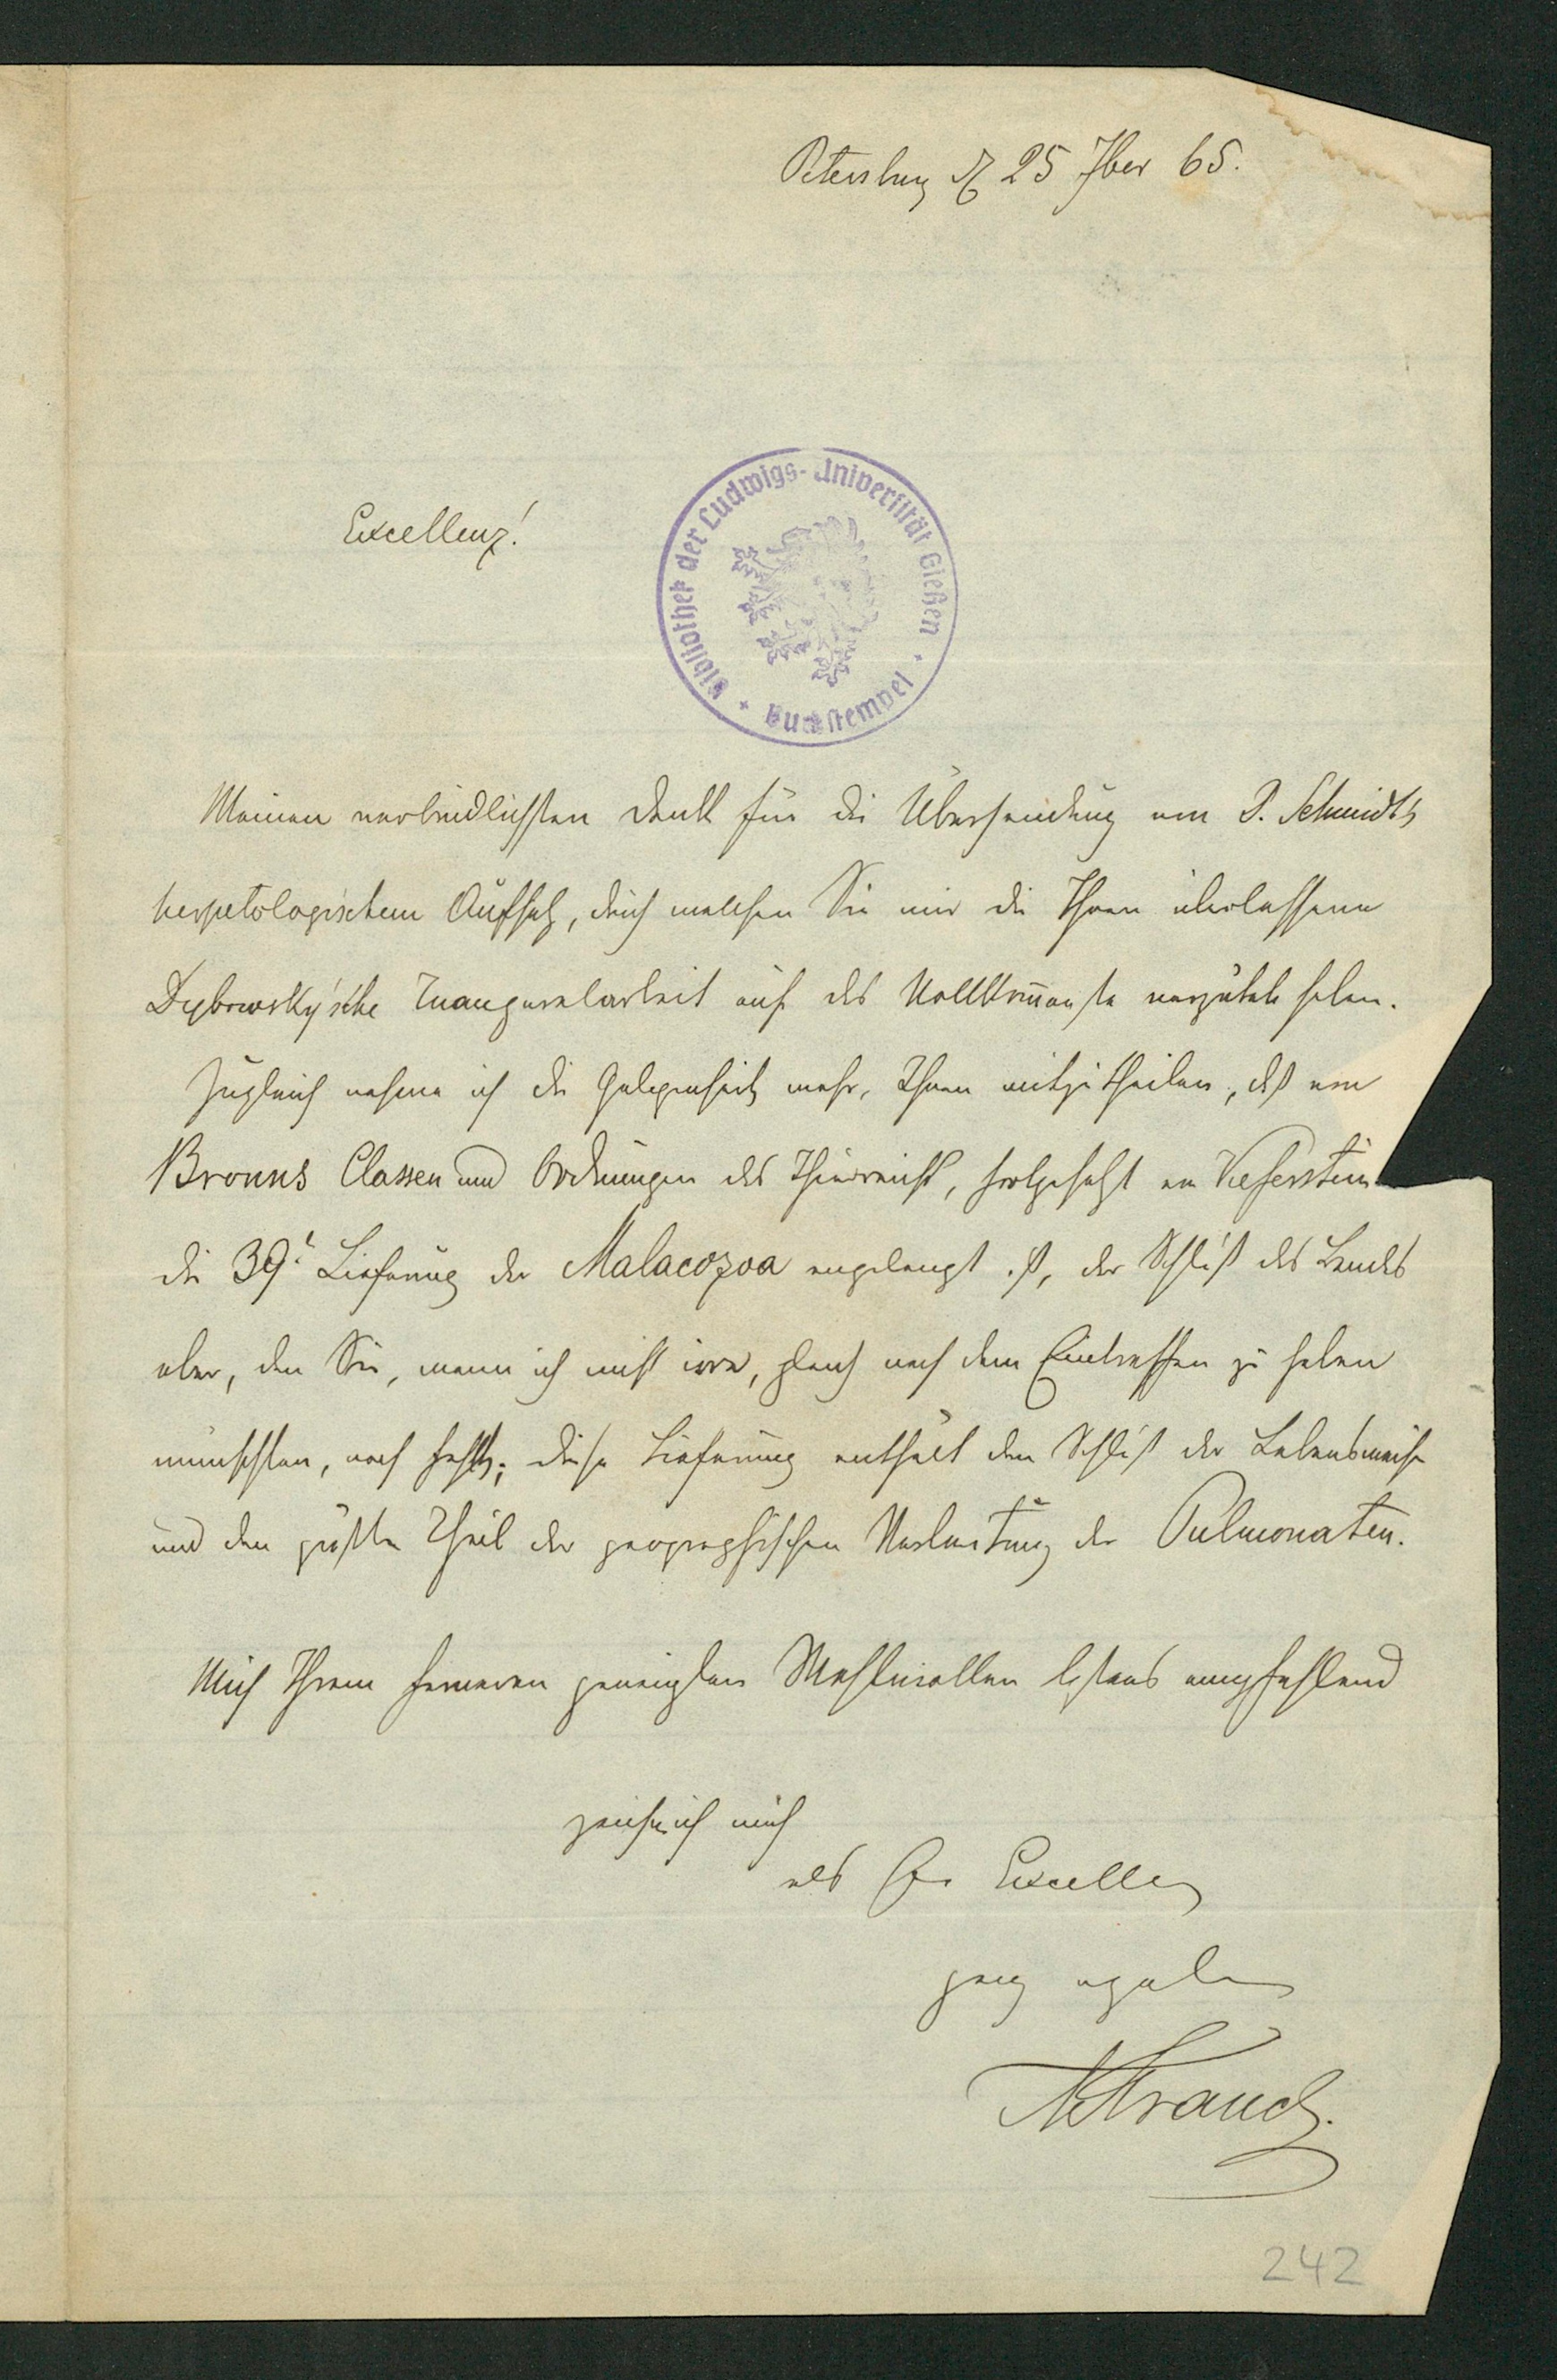 Petersburg d 25 7ber 65.
Excellenz!
Bibliothek der Ludwigs-Universität Gießen
Buchstempel
Meinen verbindlichsten Dank für die Übersendung von O. Schmidts
herpetologischem Aufsatz, durch welchen Sie mir die Ihnen überlassene
Dybowsky'sche Inauguralarbeit auf das Vollkom̄enste vergütet haben.
Zugleich nehme ich die Gelegenheit wahr, Ihnen mitzutheilen, daß von
Bronns Classen und Ordnungen des Thierreichs, fortgesetzt von Keferstein
die 39te Lieferung der Malacozoa angelangt ist, der Schluß des Bandes
aber, den Sie, wenn ich nicht irre, gleich nach dem Eintreffen zu haben
wünschten, noch fehlt; diese Lieferung enthält den Schluß der Lebensweise
und den größten Theil der geographischen Verbreitung der Pulmonaten.
Mich Ihrem ferneren geneigten Wohlwollen bestens empfehlend
zeichne ich mich
als Ew Excellenz
ganz ergebener
A Strauch.
242